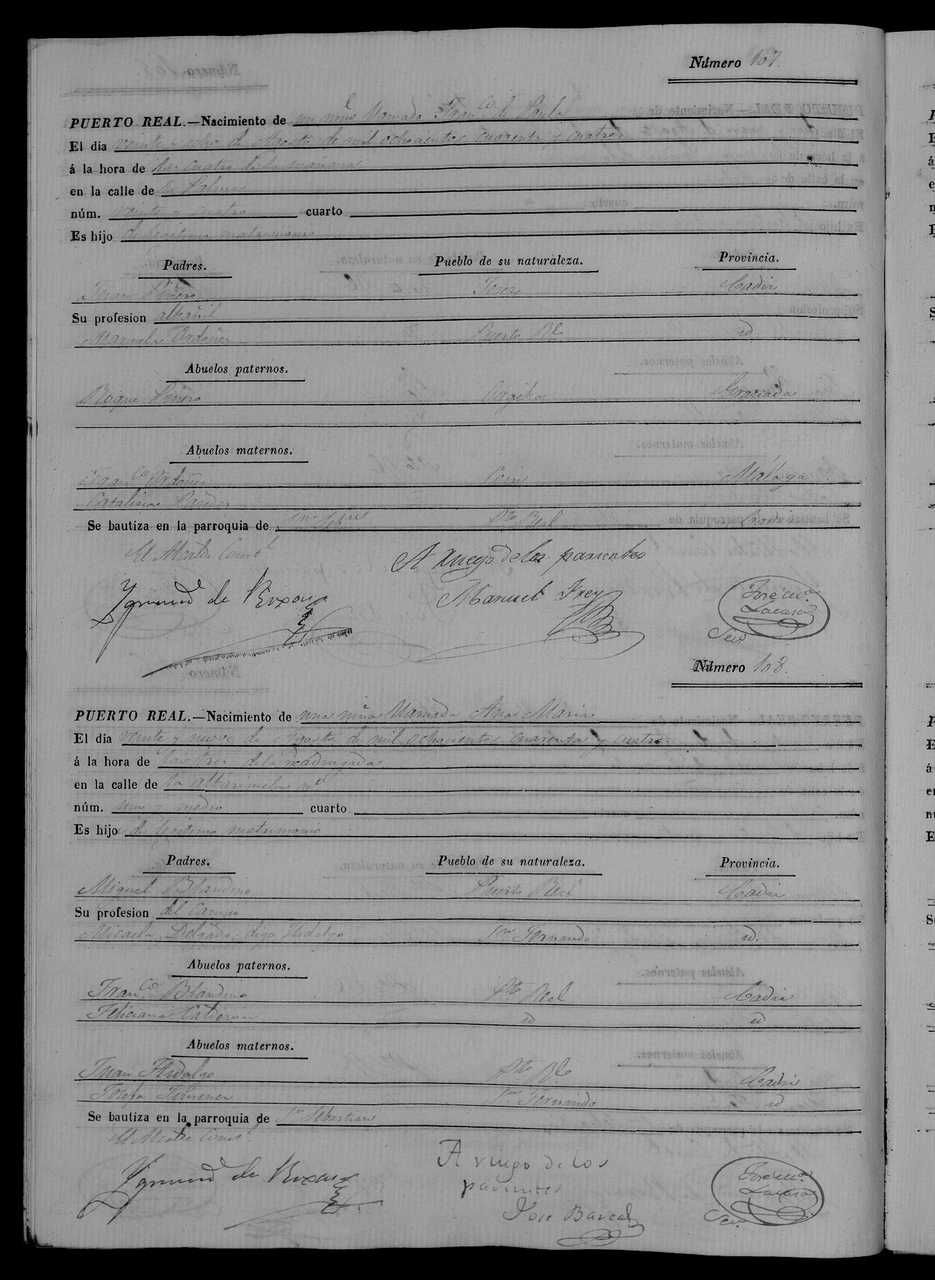 Número 107.
PUERTO REAL.—Nacimiento de un niño llamado Franco de Paula
El dia veinte y ocho de Agosto de mil ochocientos cuarenta y cuatro
á la hora de las cuatro de la mañana
en la calle de la Palma
núm. veinte y cuatro cuarto
Es hijo de lexitimo matrimonio
Padres. Pueblo de su naturaleza. Provincia.
Juan Cadiz
Su profesion albañil
Manuela Ordoñez Puerto Rl id
Abuelos paternos.
Roque Granada
Abuelos maternos.
Franco Ordoñez Coin Málaga
Catalina
Se bautiza en la parroquia de San Sebn Pto Real
El Alcalde Constl
A ruego de los parientes
Ygnacio de Manuel Frey José Ma Lacasa
Seco
Número 108.
PUERTO REAL.—Nacimiento de una niña llamada Ana Maria
El dia veinte y nueve de Agosto de mil ochocientos cuarenta y cuatro
á la hora de las tres de la madrugada
en la calle de la
núm. cuarto
Es hijo de lexitimo matrimonio
Padres. Pueblo de su naturaleza. Provincia.
Miguel Blandino Puerto Real Cadiz
Su profesion del Campo
Micaela Delgado digo Hidalgo Sn Fernando id.
Abuelos paternos.
Franco Blandino Pto Real Cadiz
Feliciana Calderon id id
Abuelos maternos.
Juan Hidalgo Pto Rl Cadiz
Josefa Jimenez Sn Fernando id
Se bautiza en la parroquia de Sn Sebastian
El Alcalde Constl
A ruego de los
parientes
Ygnacio de José Ma Lacasa
Jose Barcal Seco